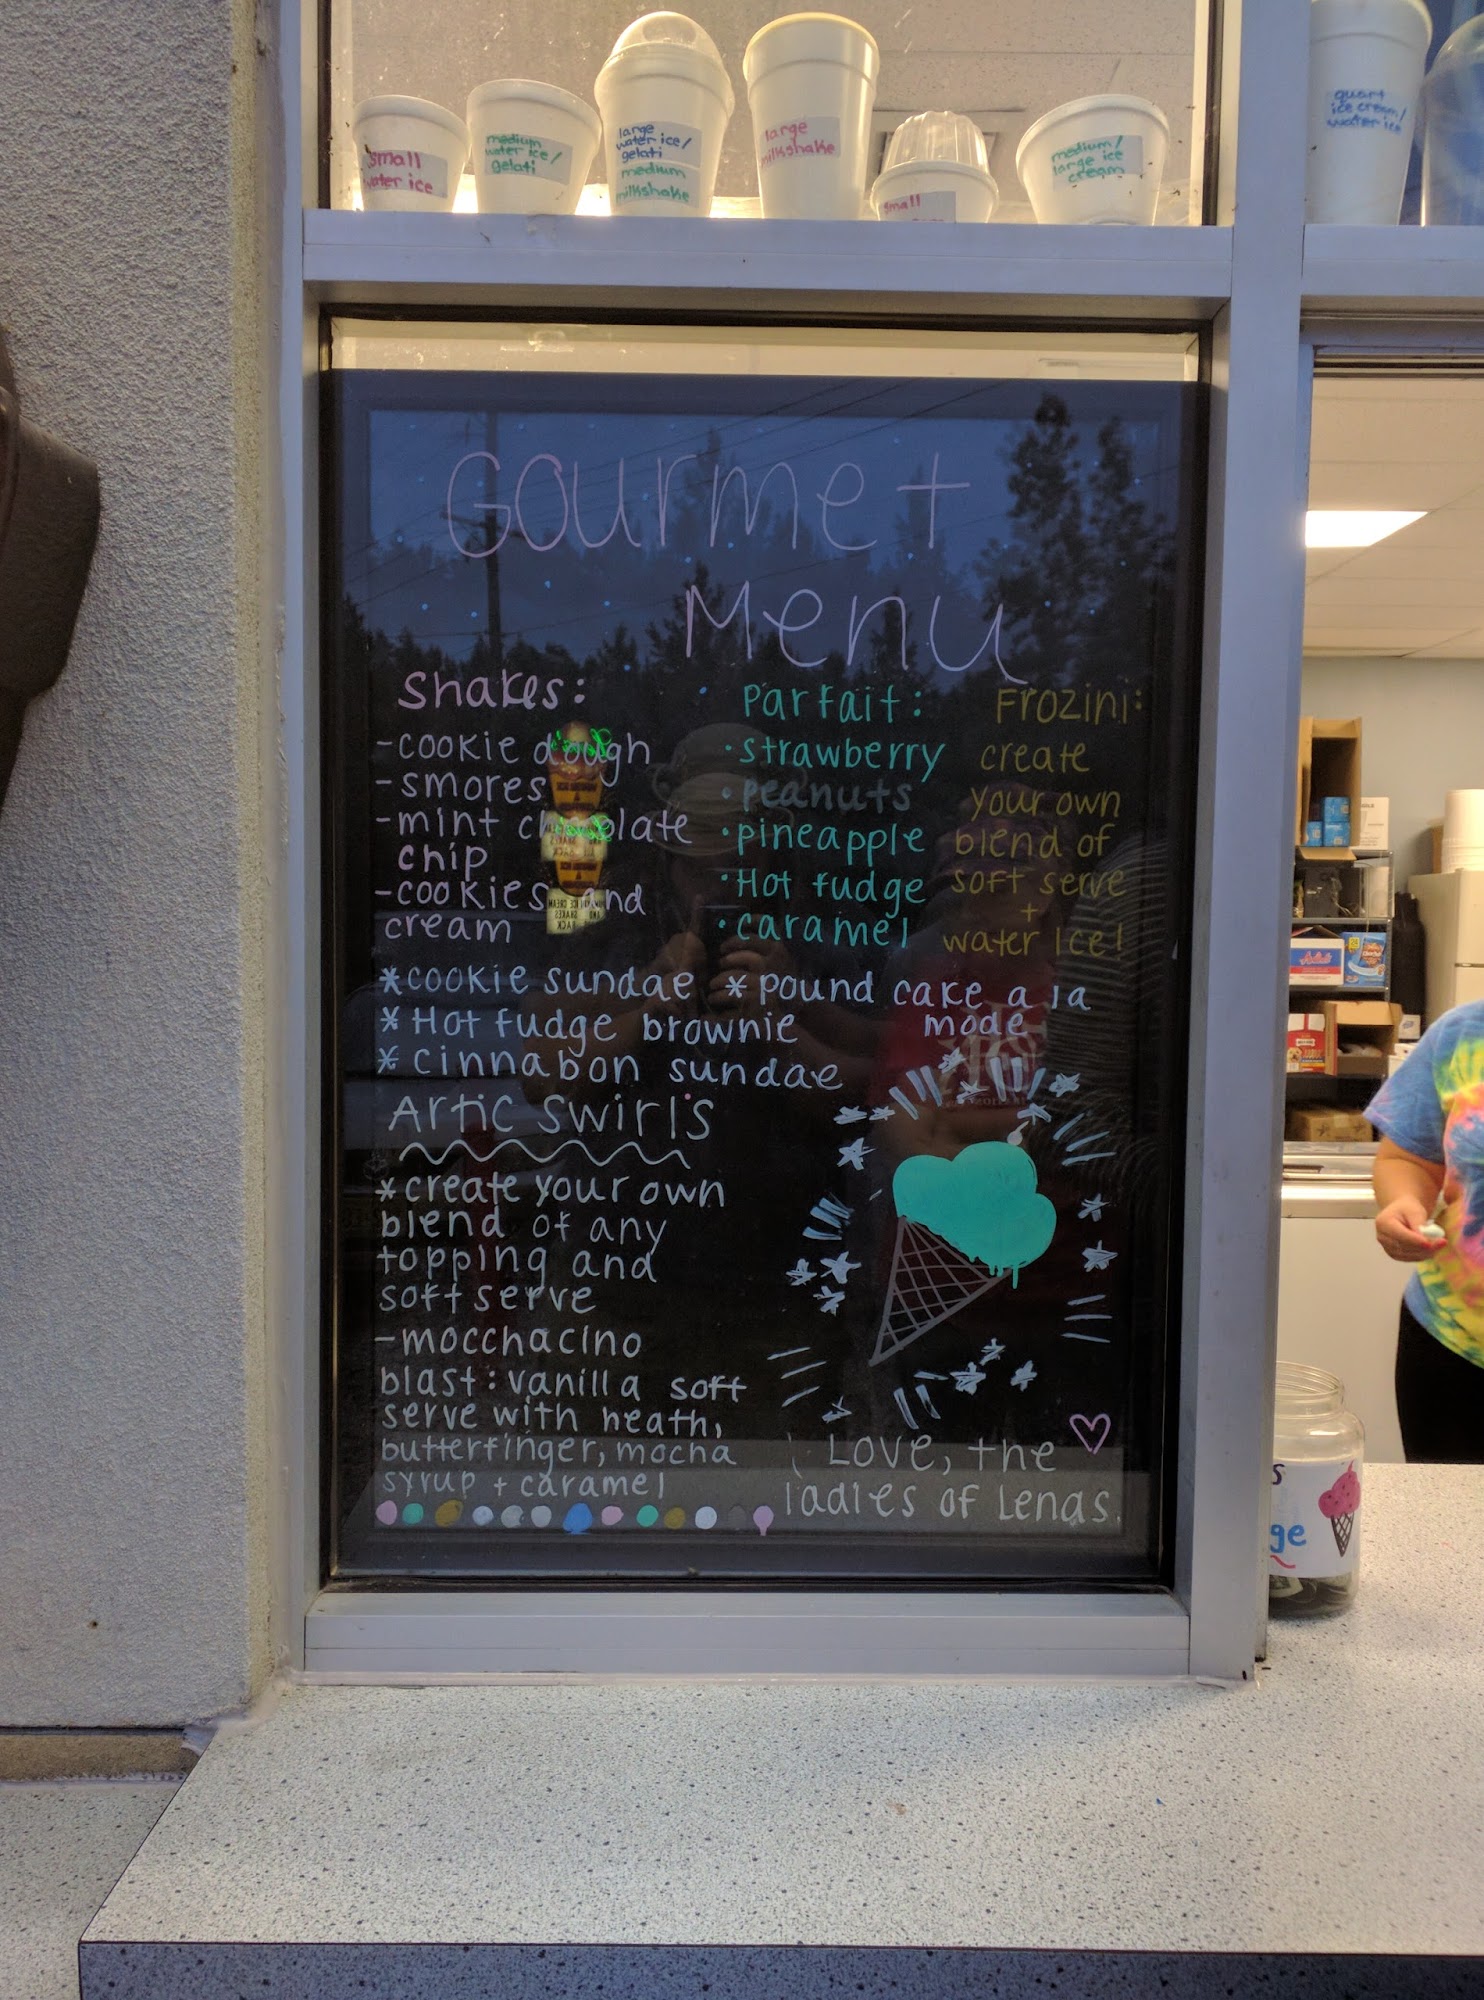 small
water ice
medium
water ice/
gelati
large
water ice/
gelati
medium
milkshake
large
milkshake
small
medium/
large ice
cream
quart
ice cream/
water ice
Gourmet
Menu
Shakes:
-cookie dough
-smores
-mint chocolate
chip
-cookies and
cream
Parfait:
•strawberry
•peanuts
•pineapple
•Hot fudge
•caramel
Frozini:
create
your own
blend of
soft serve
+
water ice!
*cookie sundae
*Hot fudge brownie
*cinnabon sundae
*pound cake a la
mode
Artic Swirls
*create your own
blend of any
topping and
soft serve
-mocchacino
blast: vanilla soft
serve with heath,
butterfinger, mocha
syrup + caramel
Love, the
ladies of Lenas.